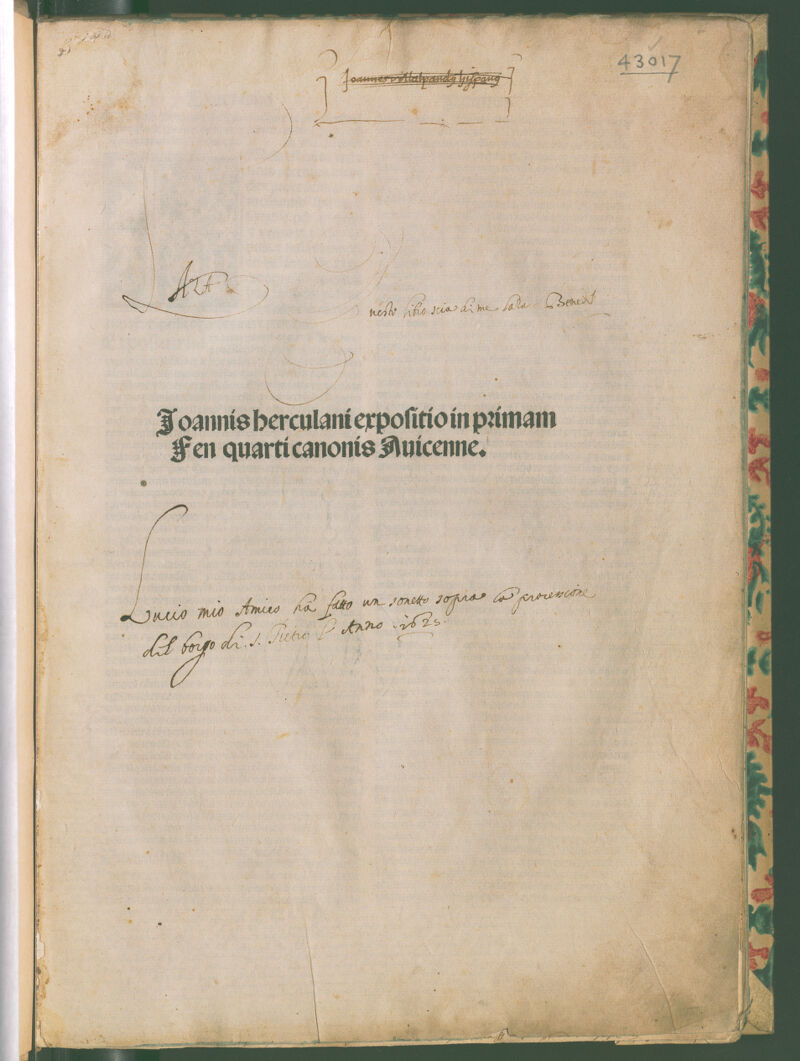 43017
Joannes Villalpandus hispanus
nesto libro scia di me Bened
Joannis herculani expositio in primam
Fen quarti canonis Auicenne.
Lucio mio Amico ha fatto un sonetto sopra la processione
del borgo di S. Pietro Anno 1623